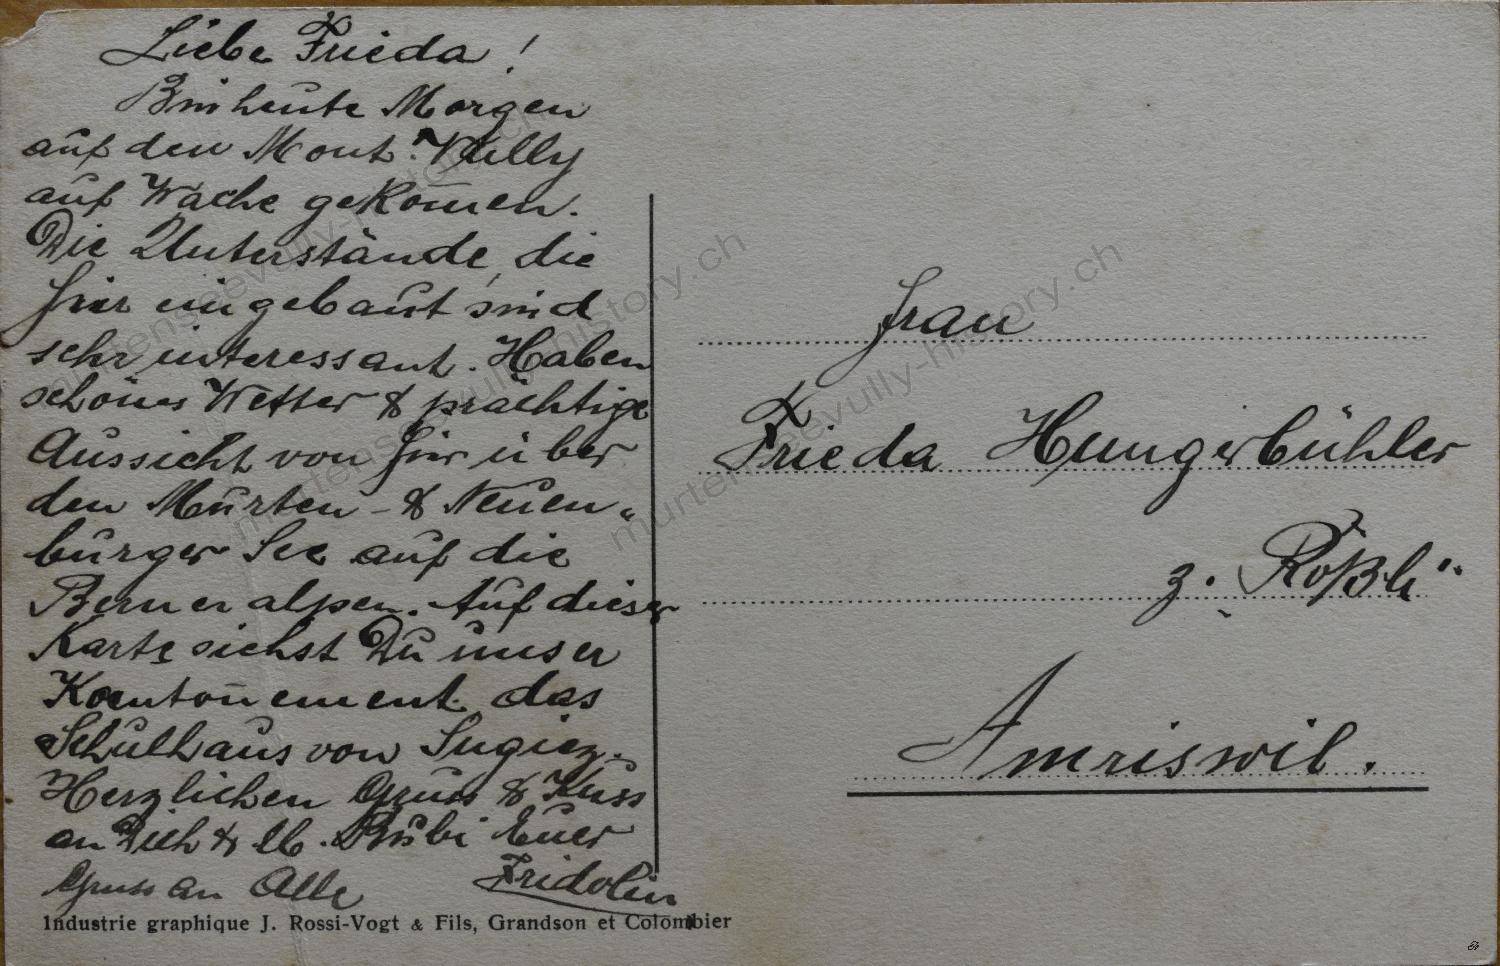 Liebe Frieda!
Bin heute Morgen
auf den Mont-Vully
auf Wache gekom̅en.
Die Unterstände, die
hier eingebaut sind
sehr interessant. Haben
schönes Wetter & prächtige
Aussicht von hier über
den Murten- & Neuen-
burger See auf die
Berneralpen. Auf dieser
Karte siehst Du unser
Kanton̅ement das
Schulhaus von Sugiez.
Herzlichen Gruss & Kuss
an Dich & lb. Bubi Euer
Fridolin
Gruss an Alle
Industrie graphique J. Rossi-Vogt & Fils, Grandson et Colombier
Frau
Frieda Hungerbühler
z. „Rößli“
Amriswil.
murtenseevully-history.ch
murtenseevully-history.ch
murtenseevully-history.ch